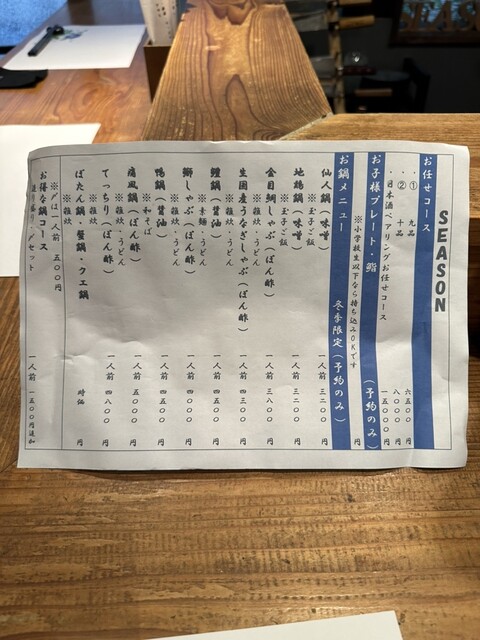 SEASON
お任せコース
① 九品 六五〇〇円
② 十品 八〇〇〇円
・日本酒ペアリングお任せコース 一五〇〇〇円
お子様プレート・鮨 (予約のみ)
※小学校生以下なら持ち込みOKです 円
お鍋メニュー 冬季限定(予約のみ)
仙人鍋(味噌) 一人前 三二〇〇円
※玉子ご飯
地鶏鍋(味噌) 一人前 三二〇〇円
※玉子ご飯
金目鯛しゃぶ(ぽん酢) 一人前 三八〇〇円
※雑炊・うどん
生国産うなぎしゃぶ(ぽん酢) 一人前 四三〇〇円
※雑炊・うどん
鱧鍋(醤油) 一人前 四五〇〇円
※素麺・うどん
鰤しゃぶ(ぽん酢) 一人前 四〇〇〇円
※雑炊・うどん
鴨鍋(醤油) 一人前 四五〇〇円
※和そば
痛風鍋(ぽん酢) 一人前 四五〇〇円
※雑炊・うどん
てっちり(ぽん酢) 一人前 四八〇〇円
※雑炊
ぼたん鍋・蟹鍋・クエ鍋 時価 円
※雑炊
※〆は一人前 五〇〇円
お得な鍋コース
造り盛り・〆セット 一人前 一五〇〇円追加